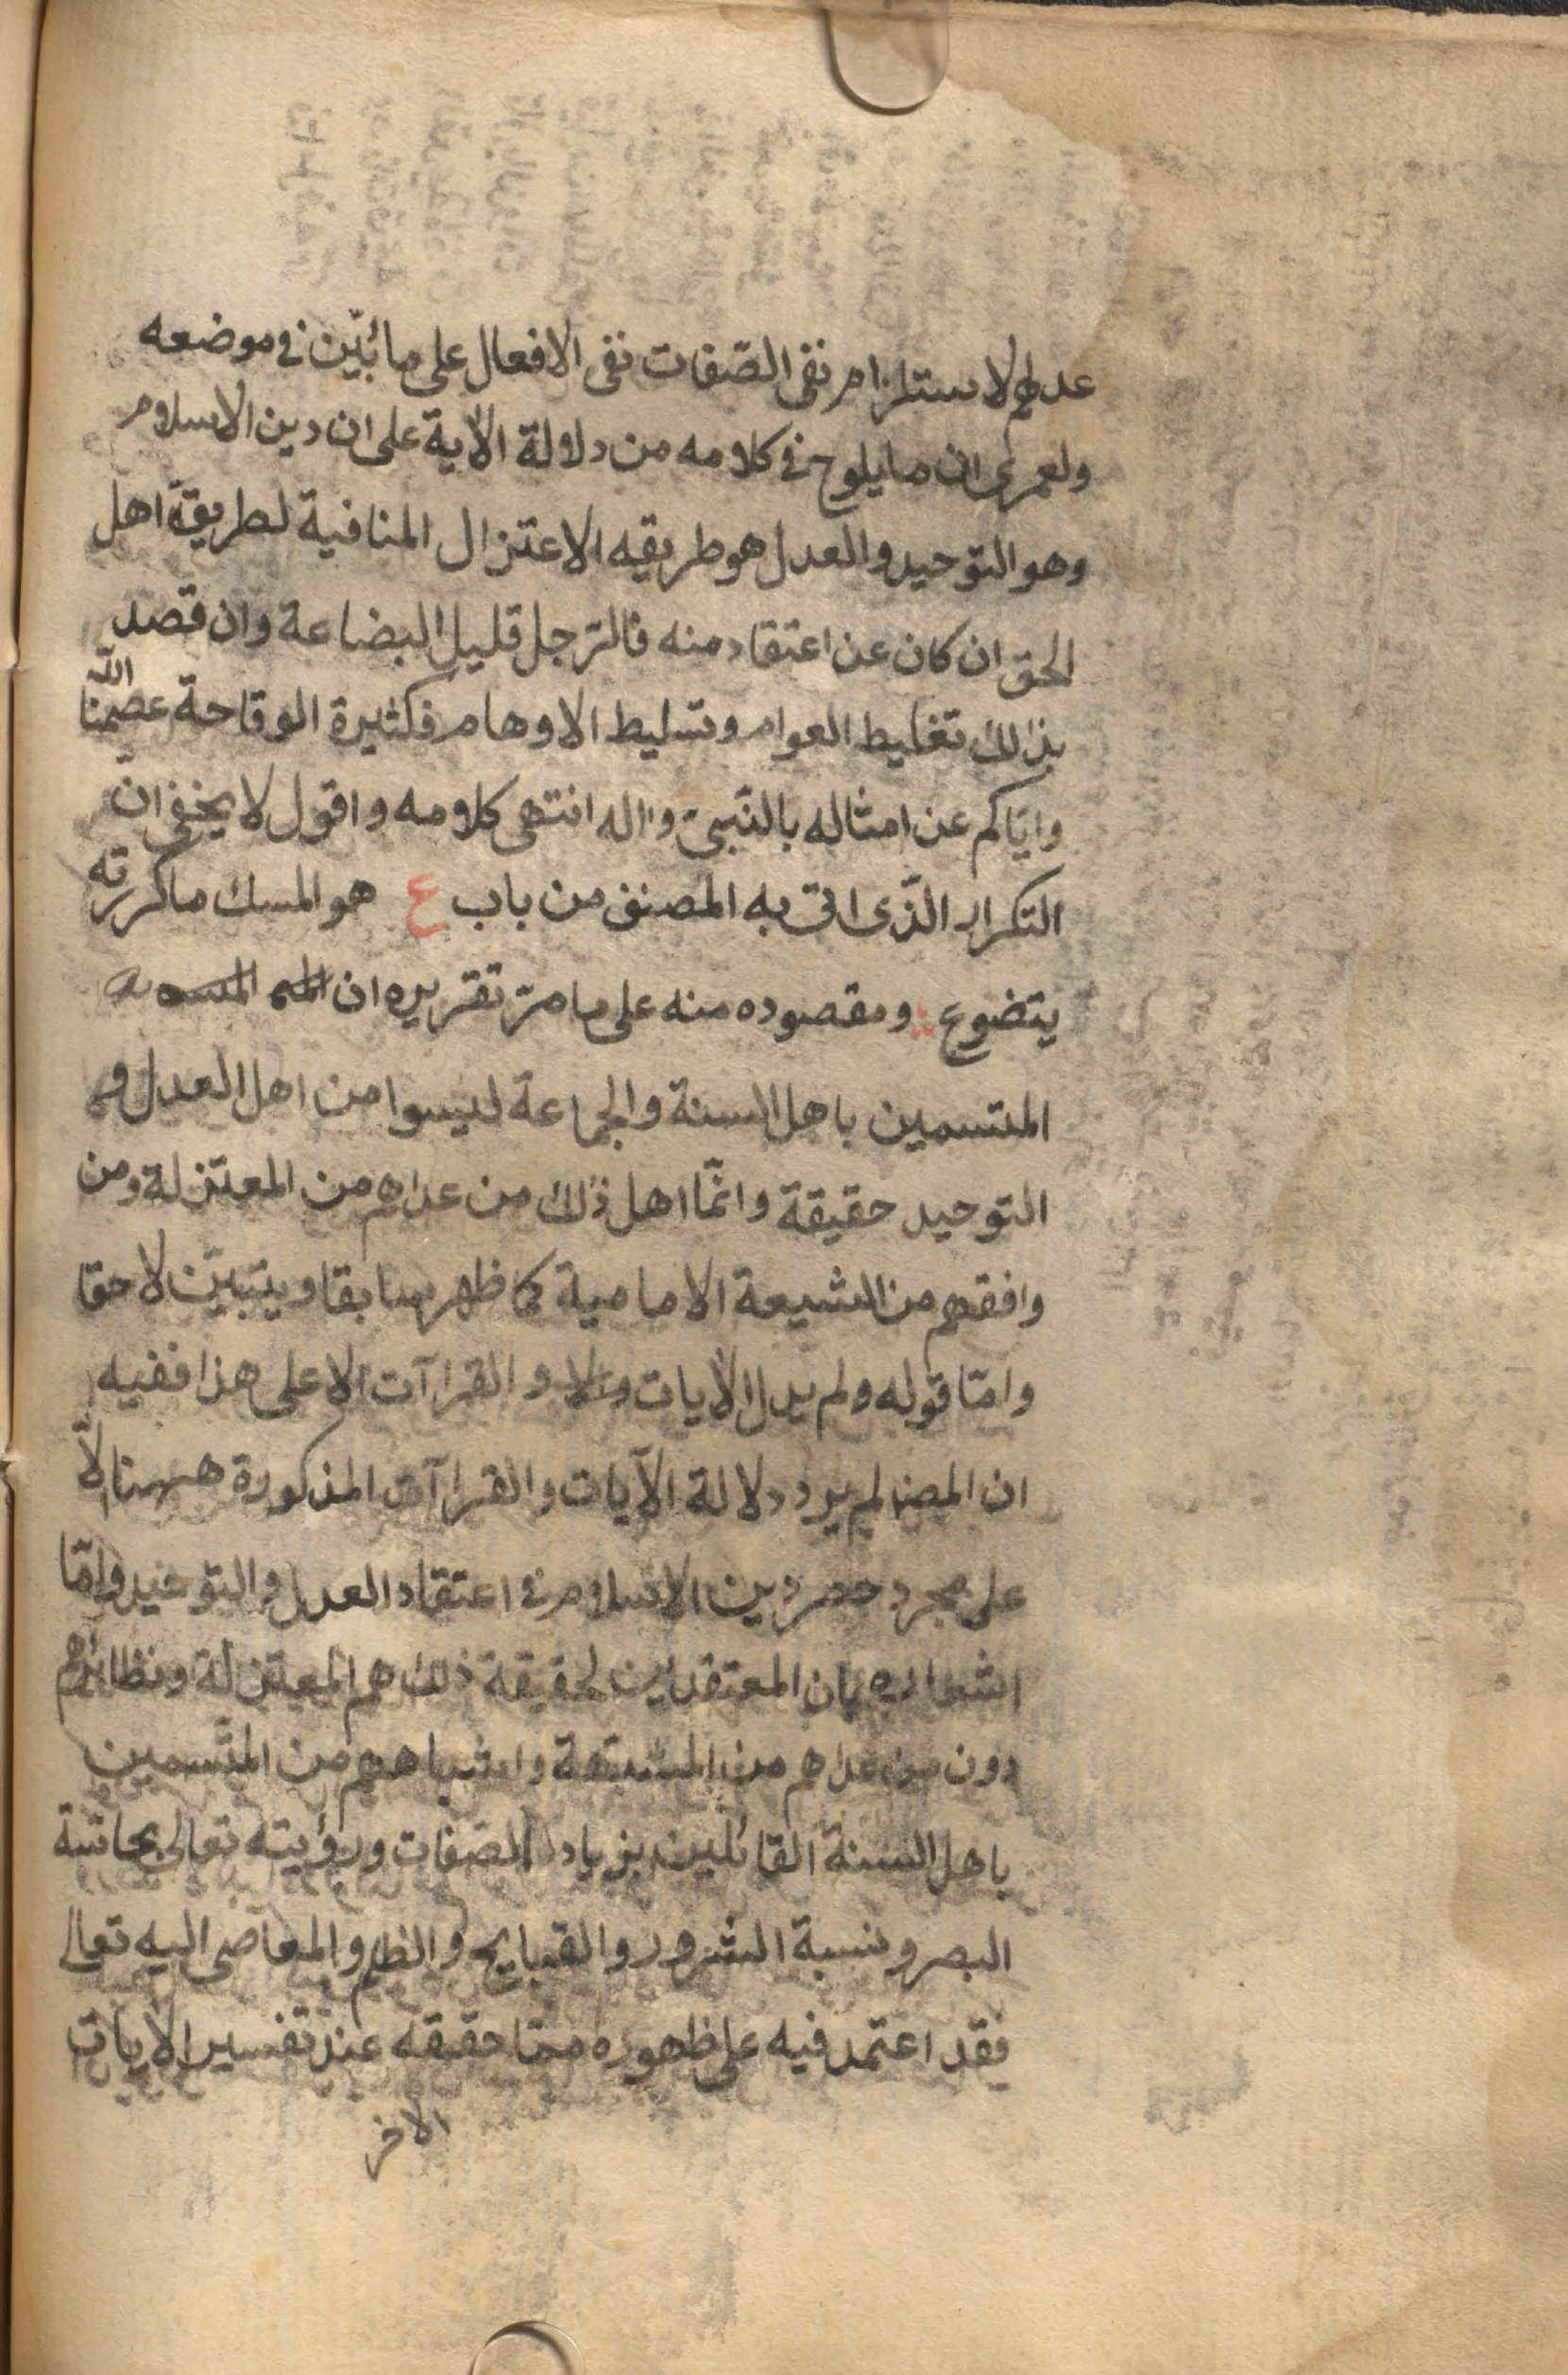 عدلهم لاستلزام نفى الصّفات نفى الافعال على ما بُيّن فى موضعه
ولعمرى ان ما يلوح فى كلامه من دلالة الآية على ان دين الاسلام
وهو التوحيد والعدل هو طريقه الاعتزال المنافية لطريقة اهل
الحق ان كان عن اعتقاد منه فالرّجل قليل البضاعة وان قصد
بذلك تغليط العوام وتسليط الاوهام فكثيرة الوقاحة عصمنا الله
وايّاكم عن امثاله بالنّبىّ واله انتهى كلامه واقول لا يخفى ان
التكرار الّذى اتى به المصنف من باب ع هو المسك ما كررته
يتضوع ومقصوده منه على ما مرّ تقريره ان
المتسمين باهل السنة والجماعة ليسوا من اهل العدل و
التوحيد حقيقة وانّما اهل ذلك من عداهم من المعتزلة ومن
وافقهم من الشيعة الامامية كما ظهر سابقا ويتبيّن لاحقا
وامّا قوله ولم يدل الآيات والقراآت الا على هذا ففيه
ان المصنف لم يرد دلالة الآيات والقراآت المذكورة ههنا الّا
على مجرد حصر دين الاسلام فى اعتقاد العدل والتوحيد وامّا
اشعاره بان المعتقدين لحقيقة ذلك هم المعتزلة ونظائرهم
دون من عداهم من المشبّهة واشباههم من المتّسمين
باهل السنة القائلين بزيادة الصّفات ورؤيته تعالى بحاسّة
البصر ونسبة الشرور والقبايح والظلم والمعاصى اليه تعالى
فقد اعتمد فيه على ظهوره ممّا حققه عند تفسير الآيات
الاخر